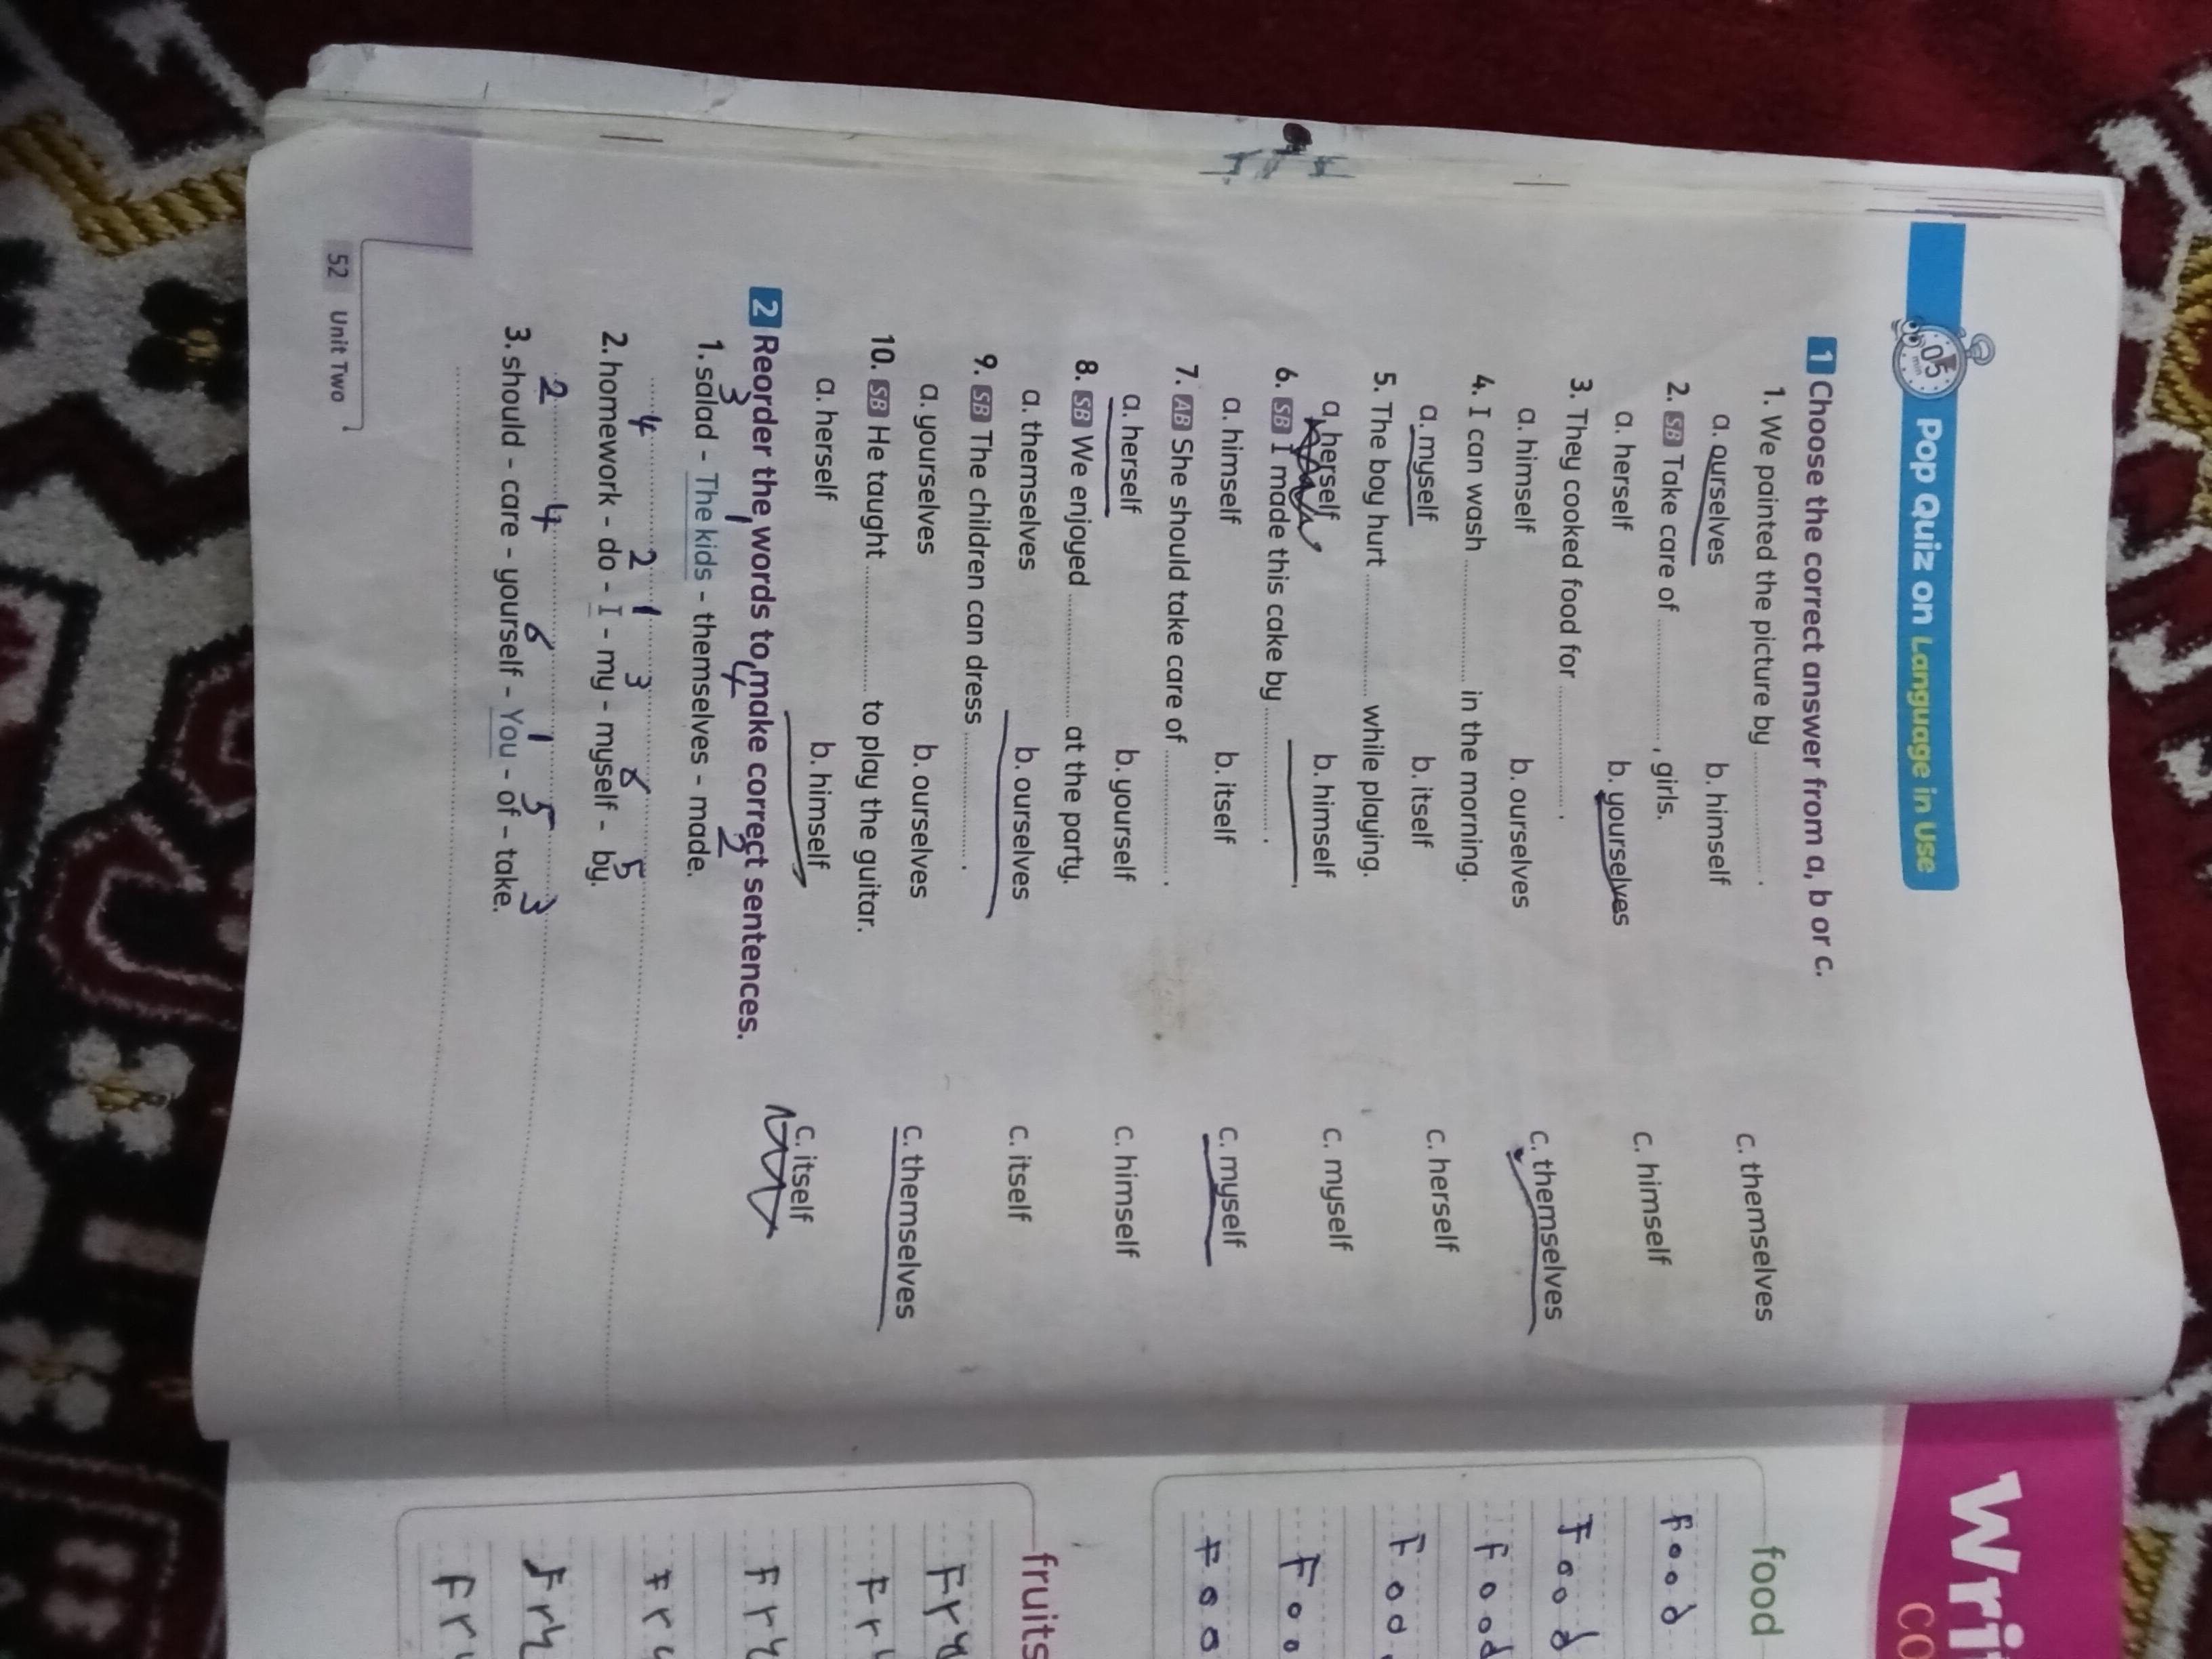 05 min
Pop Quiz on Language in Use
1 Choose the correct answer from a, b or c.
1. We painted the picture by ............ .
a. ourselves b. himself c. themselves
2. SB Take care of ............ , girls.
a. herself b. yourselves c. himself
3. They cooked food for ............ .
a. himself b. ourselves c. themselves
4. I can wash ............ in the morning.
a. myself b. itself c. herself
5. The boy hurt ............ while playing.
a. herself b. himself c. myself
6. SB I made this cake by ............ .
a. himself b. itself c. myself
7. AB She should take care of ............ .
a. herself b. yourself c. himself
8. SB We enjoyed ............ at the party.
a. themselves b. ourselves c. itself
9. SB The children can dress ............ .
a. yourselves b. ourselves c. themselves
10. SB He taught ............ to play the guitar.
a. herself b. himself c. itself
2 Reorder the words to make correct sentences.
3 1 4 2
1. salad - The kids - themselves - made.
4 2 1 3 6 5
2. homework - do - I - my - myself - by.
2 4 6 1 5 3
3. should - care - yourself - You - of - take.
52 Unit Two
Wri
co
food
Food
Food
Food
Food
Foo
Foo
fruits
Fru
Fru
Fru
Fru
Fru
Fru